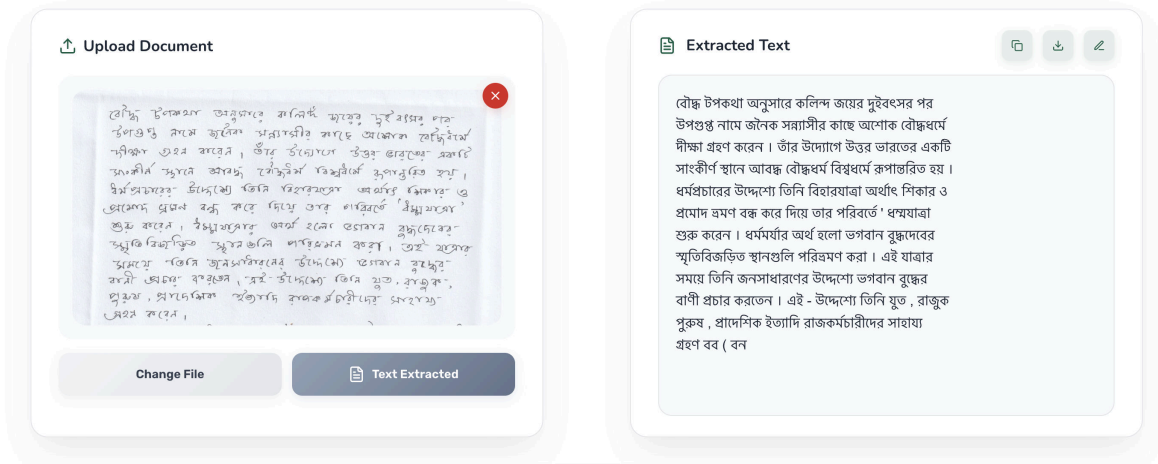 Upload Document
বৌদ্ধ উপকথা অনুসারে কলিঙ্গ জয়ের দুই বৎসর পর
উপগুপ্ত নামে জনৈক সন্ন্যাসীর কাছে অশোক বৌদ্ধধর্মে
দীক্ষা গ্রহন করেন। তাঁর উদ্যোগে উত্তর ভারতের একটি
সংকীর্ন স্থানে আবদ্ধ বৌদ্ধধর্ম বিশ্বধর্মে রূপান্তরিত হয়।
ধর্মপ্রচারের উদ্দেশ্যে তিনি বিহারযাত্রা অর্থাৎ শিকার ও
প্রমোদ ভ্রমন বন্ধ করে দিয়ে তার পরিবর্তে 'ধম্মযাত্রা'
শুরু করেন। ধম্মযাত্রার অর্থ হলো ভগবান বুদ্ধদেবের
স্মৃতিবিজড়িত স্থানগুলি পরিভ্রমন করা। এই যাত্রার
সময়ে তিনি জনসাধারনের উদ্দেশ্যে ভগবান বুদ্ধের
বানী প্রচার করতেন। এই উদ্দেশ্যে তিনি যুত, রাজুক,
পুরুষ, প্রাদেশিক ইত্যাদি রাজকর্মচারীদের সাহায্য
গ্রহন করেন।
Change File
Text Extracted
Extracted Text
বৌদ্ধ টপকথা অনুসারে কলিন্দ জয়ের দুইবৎসর পর
উপগুপ্ত নামে জনৈক সন্ন্যাসীর কাছে অশোক বৌদ্ধধর্মে
দীক্ষা গ্রহণ করেন । তাঁর উদ্যোগে উত্তর ভারতের একটি
সাংকীর্ণ স্থানে আবদ্ধ বৌদ্ধধর্ম বিশ্বধর্মে রূপান্তরিত হয় ।
ধর্মপ্রচারের উদ্দেশ্যে তিনি বিহারযাত্রা অর্থাৎ শিকার ও
প্রমোদ ভ্রমণ বন্ধ করে দিয়ে তার পরিবর্তে ' ধম্মযাত্রা
শুরু করেন । ধর্মমর্যার অর্থ হলো ভগবান বুদ্ধদেবের
স্মৃতিবিজড়িত স্থানগুলি পরিভ্রমণ করা । এই যাত্রার
সময়ে তিনি জনসাধারণের উদ্দেশ্যে ভগবান বুদ্ধের
বাণী প্রচার করতেন । এই - উদ্দেশ্যে তিনি যুত , রাজুক
পুরুষ , প্রাদেশিক ইত্যাদি রাজকর্মচারীদের সাহায্য
গ্রহণ বব ( বন